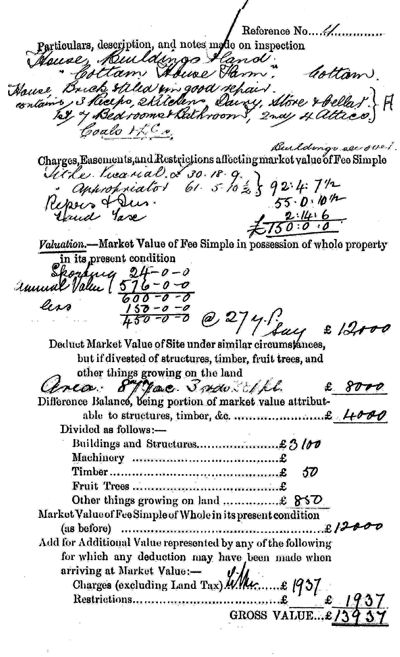 Reference No. 4
Particulars, description, and notes made on inspection
House, Buildings & land
"Cottam House Farm". Cottam.
House, Brick & tiled in good repair.
contains, 3 Recep, 2 Kitchens, Dairy, Store & cellar
1st 7 Bedrooms & Bathroom, 2nd 4 Attics
Coals &
Buildings see over.
Charges, Easements, and Restrictions affecting market value of Fee Simple
Tithe Vicarial £ 30.18.9.
" Appropriator 61.5.10½ } 92:4:7½
Repairs & Ins. 55.0.10½
Land Tax 2:14:6
£150:0:0
Valuation.—Market Value of Fee Simple in possession of whole property
in its present condition
Sporting 24-0-0
Annual Value 576-0-0
600-0-0
less 150-0-0
450-0-0 @ 27 y.p. say £ 12000
Deduct Market Value of Site under similar circumstances,
but if divested of structures, timber, fruit trees, and
other things growing on the land
Area: £ 8000
Difference Balance, being portion of market value attribut-
able to structures, timber, &c. £ 4000
Divided as follows:—
Buildings and Structures £ 3100
Machinery £
Timber £ 50
Fruit Trees £
Other things growing on land £ 850
Market Value of Fee Simple of Whole in its present condition
(as before) £ 12000
Add for Additional Value represented by any of the following
for which any deduction may have been made when
arriving at Market Value:—
Charges (excluding Land Tax) £ 1937
Restrictions £ £ 1937
GROSS VALUE...£ 13937